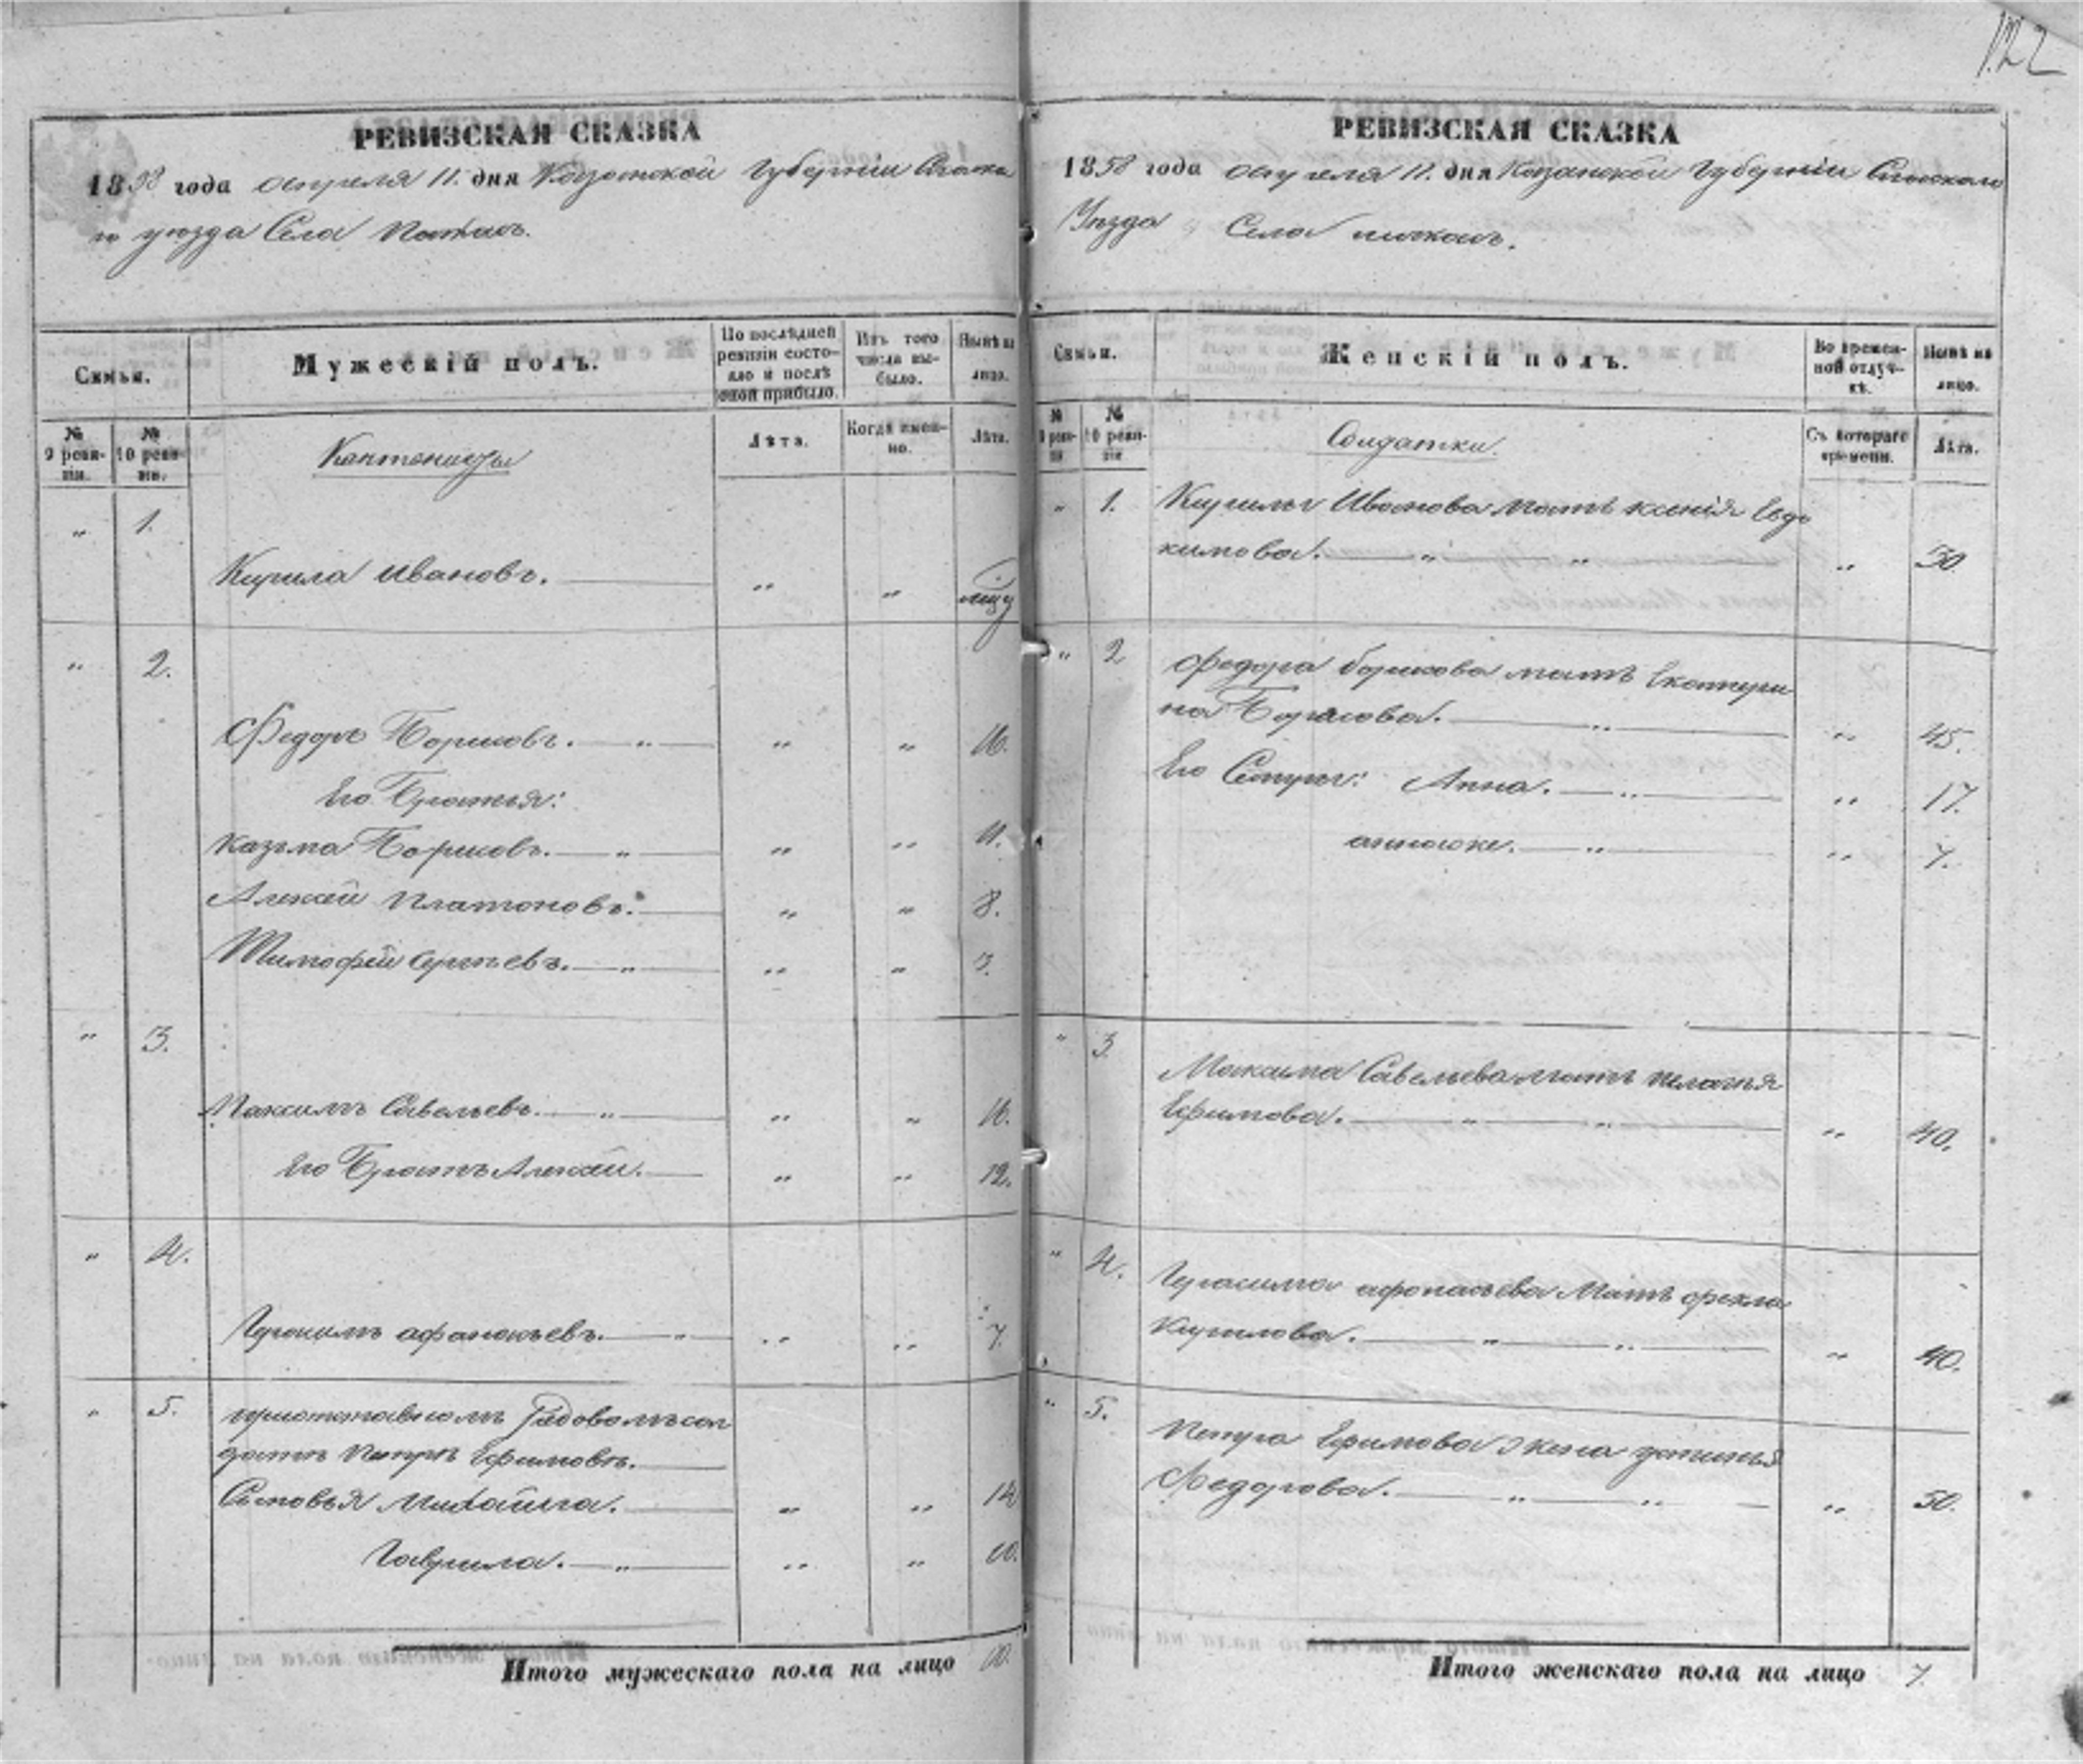 122
РЕВИЗСКАЯ СКАЗКА
1858 года апреля 11. дня Казанской Губернии Спаска
го уезда Села
Семьи.
Мужескій полъ.
По послѣдней ревизіи состояло и послѣ оной прибыло.
Изъ того числа выбыло.
Нынѣ на лицо.
№ 9 ревизіи.
№ 10 ревизіи.
Кантонисты
Лѣта.
Когда именно.
Лѣта.
„ 1.
Кирила Ивановъ. „ „
„ 2.
Федоръ Борисовъ. „ „ „ 16.
Его Братья:
Казьма Борисовъ. „ „ „ 11.
Алексей Платоновъ. „ „ 8.
Тимофей Сергеевъ. „ „ „ 3.
„ 3.
Максимъ Савельевъ. „ „ „ 16.
Его Братъ Алексей. „ „ 12.
„ 4.
Герасимъ афанасьевъ. „ „ „ 7.
„ 5.
при отставномъ Рядовомъ сол
датъ Петръ Ефимовъ.
Сыновья Михайла. „ „ 14
Гаврила. „ „ „ 10.
Итого мужескаго пола на лицо 10.
РЕВИЗСКАЯ СКАЗКА
1858 года апреля 11. дня Казанской Губернии Спаскаго
Уезда Села
Семьи.
Женскій полъ.
Во временной отлучкѣ.
Нынѣ на лицо.
№ 9 ревизіи
№ 10 ревизіи
Солдатки.
Съ котораго времени.
Лѣта.
„ 1. Кирилы Иванова мать ксения Евдо
кимова. „ „ „ 30
„ 2 Федора борисова мать Екатери
на Борисова. „ „ 45.
Его Сестры: Анна. „ „ 17.
„ „ 7.
„ 3 Максима Савельева мать пелагья
Ефимова. „ „ „ 40.
„ 4. Герасима афонасьева Мать фекла
Кирилова. „ „ „ 40.
„ 5. Петра Ефимова жена устинья
Федорова. „ „ „ 50.
Итого женскаго пола на лицо 7.